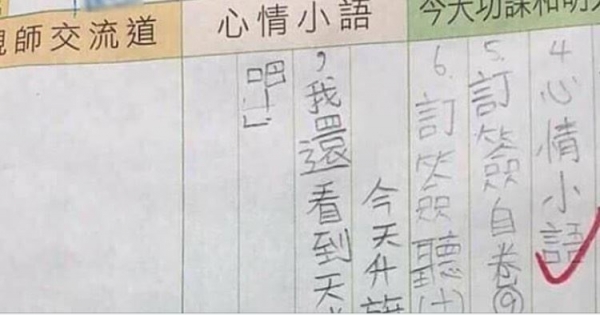 今天功課和明天
4.心情小語
5.訂簽自卷⑨
6.訂簽聽(十)
心情小語
今天升旗
，我還看到天
吧！」
親師交流道